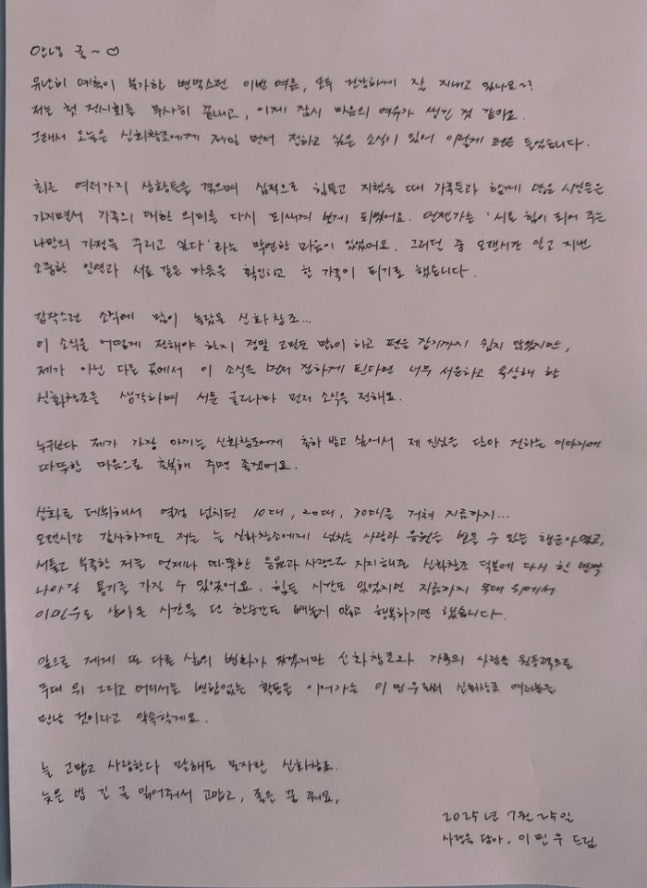 안녕 귤~♡
유난히 예측이 불가한 변덕스런 이번 여름, 모두 건강하게 잘 지내고 있나요~?
저는 첫 전시회를 무사히 끝내고, 이제 잠시 마음의 여유가 생긴 것 같아요.
그래서 오늘은 신화창조에게 제일 먼저 전하고 싶은 소식이 있어 이렇게 펜을 들었습니다.
최근 여러가지 상황들을 겪으며 심적으로 힘들고 지쳤을 때 가족들과 함께 많은 시간들을
가지면서 가족의 대한 의미를 다시 되새겨 보게 되었어요. 언젠가는 '서로 힘이 되어 주는
나만의 가정을 꾸리고 싶다' 라는 막연한 마음이 있었어요. 그러던 중 오랜시간 알고 지낸
소중한 인연과 서로 같은 마음을 확인하고 한 가족이 되기로 했습니다.
갑작스런 소식에 많이 놀랐을 신화창조...
이 소식을 어떻게 전해야 할지 정말 고민도 많이 하고 펜을 잡기까지 쉽지 않았지만,
제가 아닌 다른 곳에서 이 소식을 먼저 접하게 된다면 너무 서운하고 속상해 할
신화창조를 생각하며 서툰 글로나마 먼저 소식을 전해요.
누구보다 제가 가장 아끼는 신화창조에게 축하 받고 싶어서 제 진심을 담아 전하는 이야기에
따뜻한 마음으로 축복해 주면 좋겠어요.
신화로 데뷔해서 열정 넘치던 10대, 20대, 30대를 거쳐 지금까지...
오랜시간 감사하게도 저는 늘 신화창조에게 넘치는 사랑과 응원을 받을 수 있는 행운아였고,
서툴고 부족한 저를 언제나 따뜻한 응원과 사랑으로 지지해준 신화창조 덕분에 다시 한 발짝
나아갈 용기를 가질 수 있었어요. 힘든 시간도 있었지만 지금까지 무대 위에서
이민우로 살아온 시간을 단 한순간도 빼놓지 않고 행복하기만 했습니다.
앞으로 제게 또 다른 삶의 변화가 생겼지만 신화창조와 가족의 사랑을 원동력으로
무대 위 그리고 어디서든 변함없는 활동을 이어가는 이민우로서 신화창조 여러분을
만날 것이라고 약속할게요.
늘 고맙고 사랑한다 말해도 모자란 신화창조.
늦은 밤 긴 글 읽어줘서 고맙고, 좋은 꿈 꿔요.
2025년 7월 25일
사랑을 담아, 이민우 드림